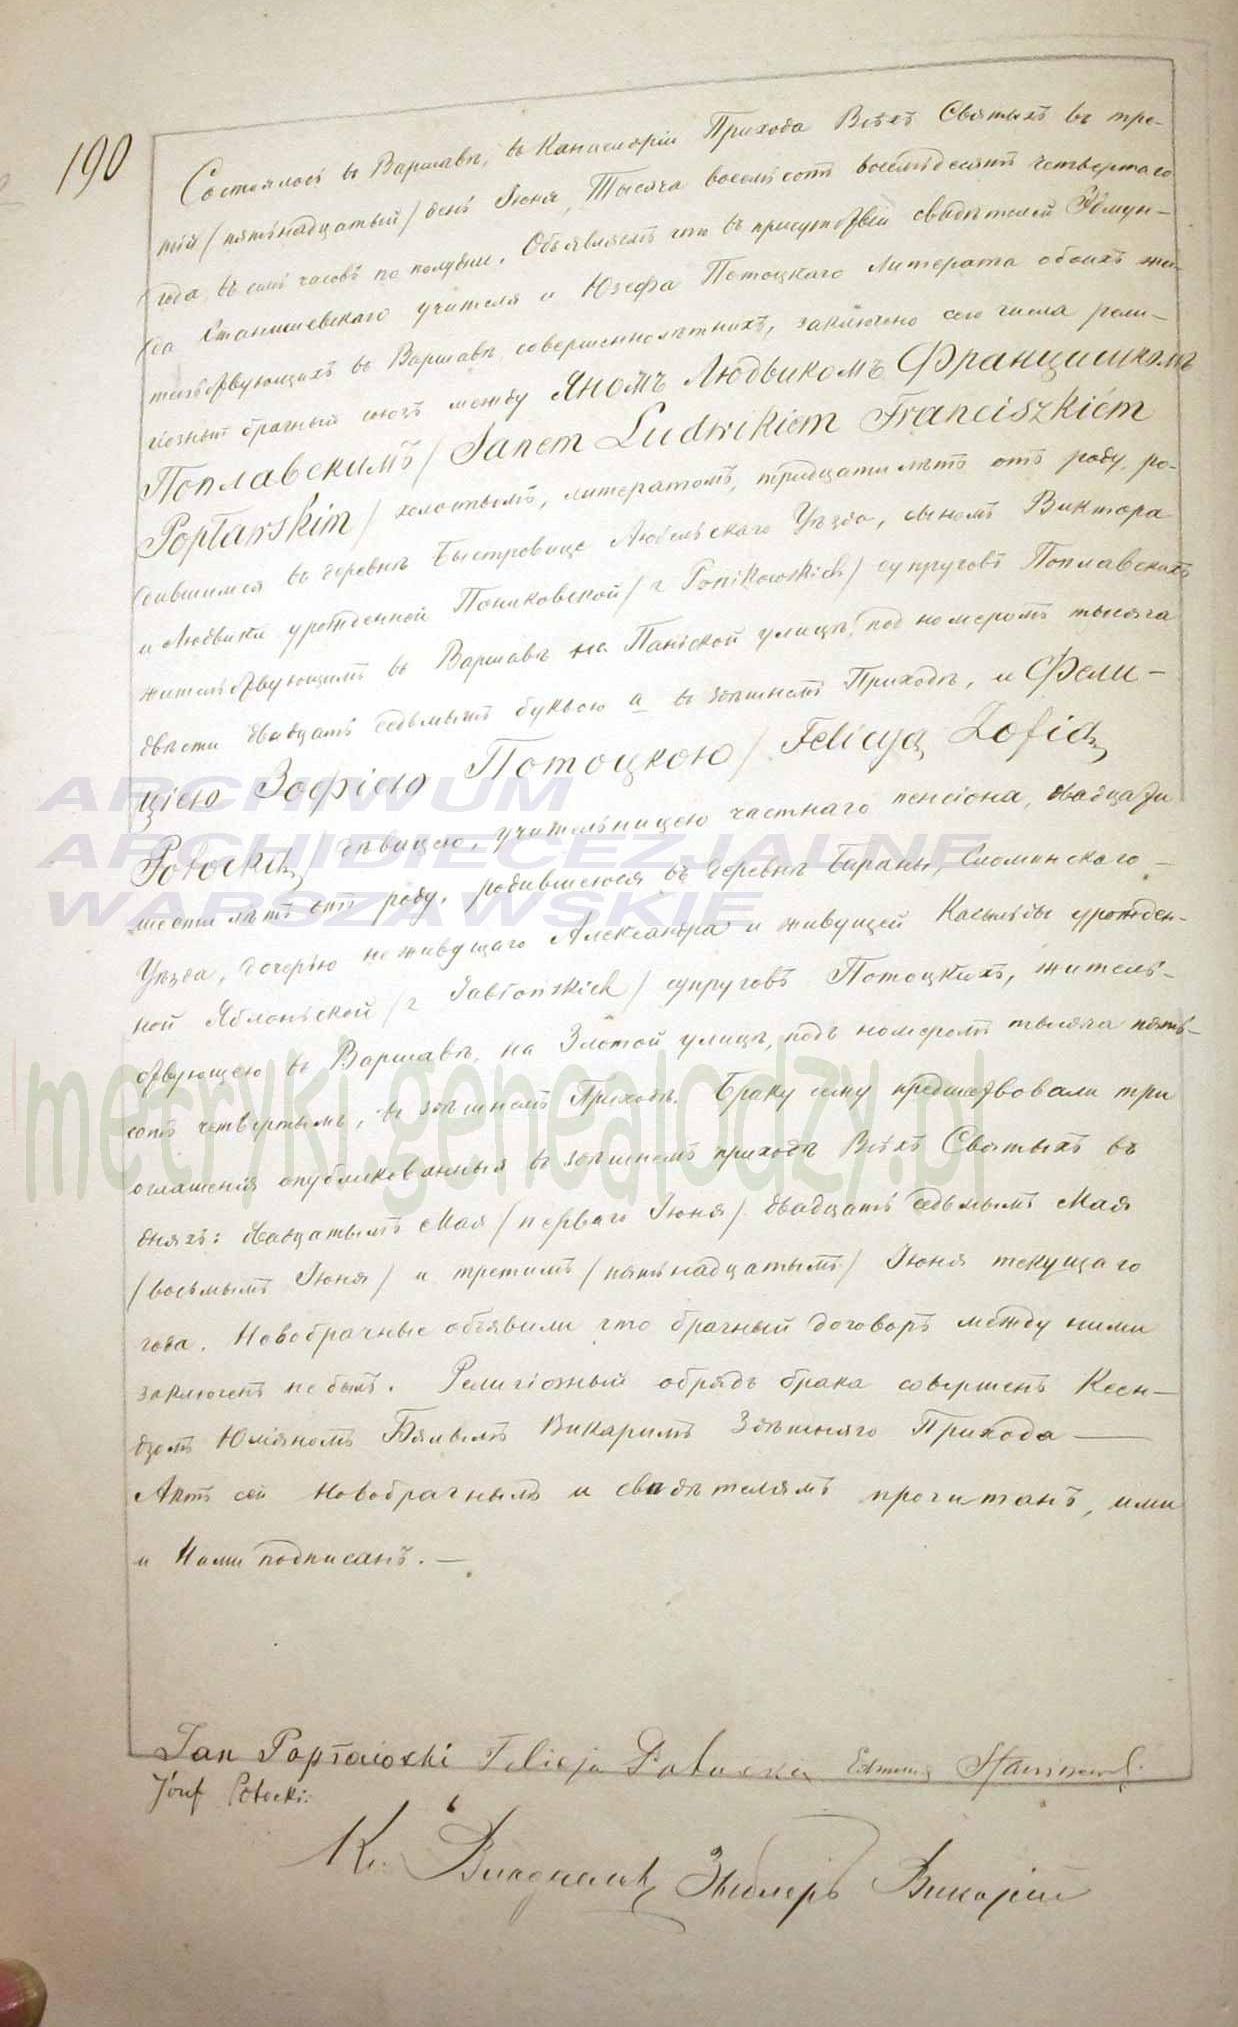 190
Состоялось въ Варшавѣ, въ Канцеляріи Прихода Всѣхъ Святыхъ въ тре-
тій /пятнадцатый/ день Іюня, Тысяча восемьсотъ восемьдесятъ четвертаго
года, въ семь часовъ по полудни. Объявляемъ что въ присутствіи свидѣтелей Эдмун-
да Станишевскаго учителя и Юзефа Потоцкаго литерата обоихъ жи-
тельствующихъ въ Варшавѣ, совершеннолѣтнихъ, заключено сего числа рели-
гіозный брачный союзъ между Яномъ Людвикомъ Францишкомъ
Поплавскимъ /Janem Ludwikiem Franciszkiém
Popławskim/ холостымъ, литератомъ, тридцати лѣтъ отъ роду, ро-
дившимся въ деревнѣ Быстровице Любельскаго Уѣзда, сыномъ Виктора
и Людвики урожденной Пониковской /z Ponikowskich/ супруговъ Поплавскихъ
жительствующимъ въ Варшавѣ на Паньской улицѣ, под номеромъ тысяча
двѣсти двадцать седьмымъ буквою а въ здѣшнемъ Приходѣ, и Фели-
цією Зофією Потоцкою /Felicyą Zofią
Potocką/ дѣвицею, учительницею частнаго пенсіона, двадцати
шести лѣтъ отъ роду, родившеюся въ деревнѣ Бараны, Слонимскаго
Уѣзда, дочерью неживущаго Александра и живущей Касыльды урожден-
ной Яблоньской /z Jabłońskich/ супруговъ Потоцкихъ, житель-
ствующею въ Варшавѣ, на Злотой улицѣ, подъ номеромъ тысяча пять-
сотъ четвертымъ, въ здѣшнемъ Приходѣ. Браку сему предшествовали три
оглашенія опубликованныя въ здѣшнемъ приходѣ Всѣхъ Святыхъ въ
дняхъ: двадцатымъ Мая /перваго Іюня/ двадцать седьмымъ Мая
/восьмымъ Іюня/ и третимъ /пятнадцатымъ/ Іюня текущаго
года. Новобрачные объявили что брачный договоръ между ними
заключенъ не былъ. Религіозный обрядъ брака совершенъ Ксен-
дзомъ Юліяномъ Бялымъ Викаримъ Здѣшняго Прихода —
Актъ сей Новобрачнымъ и свидѣтелямъ прочитанъ, ими
и Нами подписанъ. —
Jan Popławski Felicja Potocka Edmund
Józef Potocki
Кс. Викарій
ARCHIWUM
ARCHIDIECEZJALNE
WARSZAWSKIE
metryki.genealodzy.pl